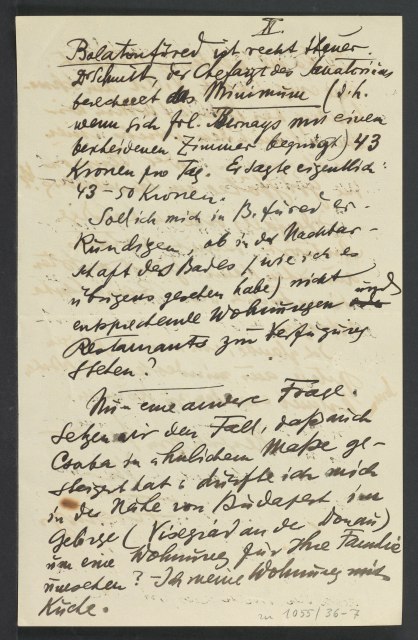 II
Balatonfüred ist recht teuer.
Dr Schmidt, der Chefarzt des Sanatoriums
berechnet das Minimum (d.h.
wenn sich Frl. Bernays mit einem
bescheidenen Zimmer begnügt) 43
Kronen pro Tag. Er sagte eigentlich:
43-50 Kronen.
Soll ich mich in B.füred er-
kundigen, ob in der Nachbar-
schaft des Bades (wie ich es
übrigens gesehen habe) nicht
entsprechende Wohnungen und
Restaurants zur Verfügung
stehen?
Nun eine andere Frage.
Setzen wir den Fall, daß auch
Csorba in ähnlichem Maße ge-
steigert hat: dürfte ich mich
in der Nähe von Budapest im
Gebirge (Visegrád an der Donau)
um eine Wohnung für Ihre Familie
umsehen? - Ich meine Wohnung mit
Küche.
zu 1055/36-7